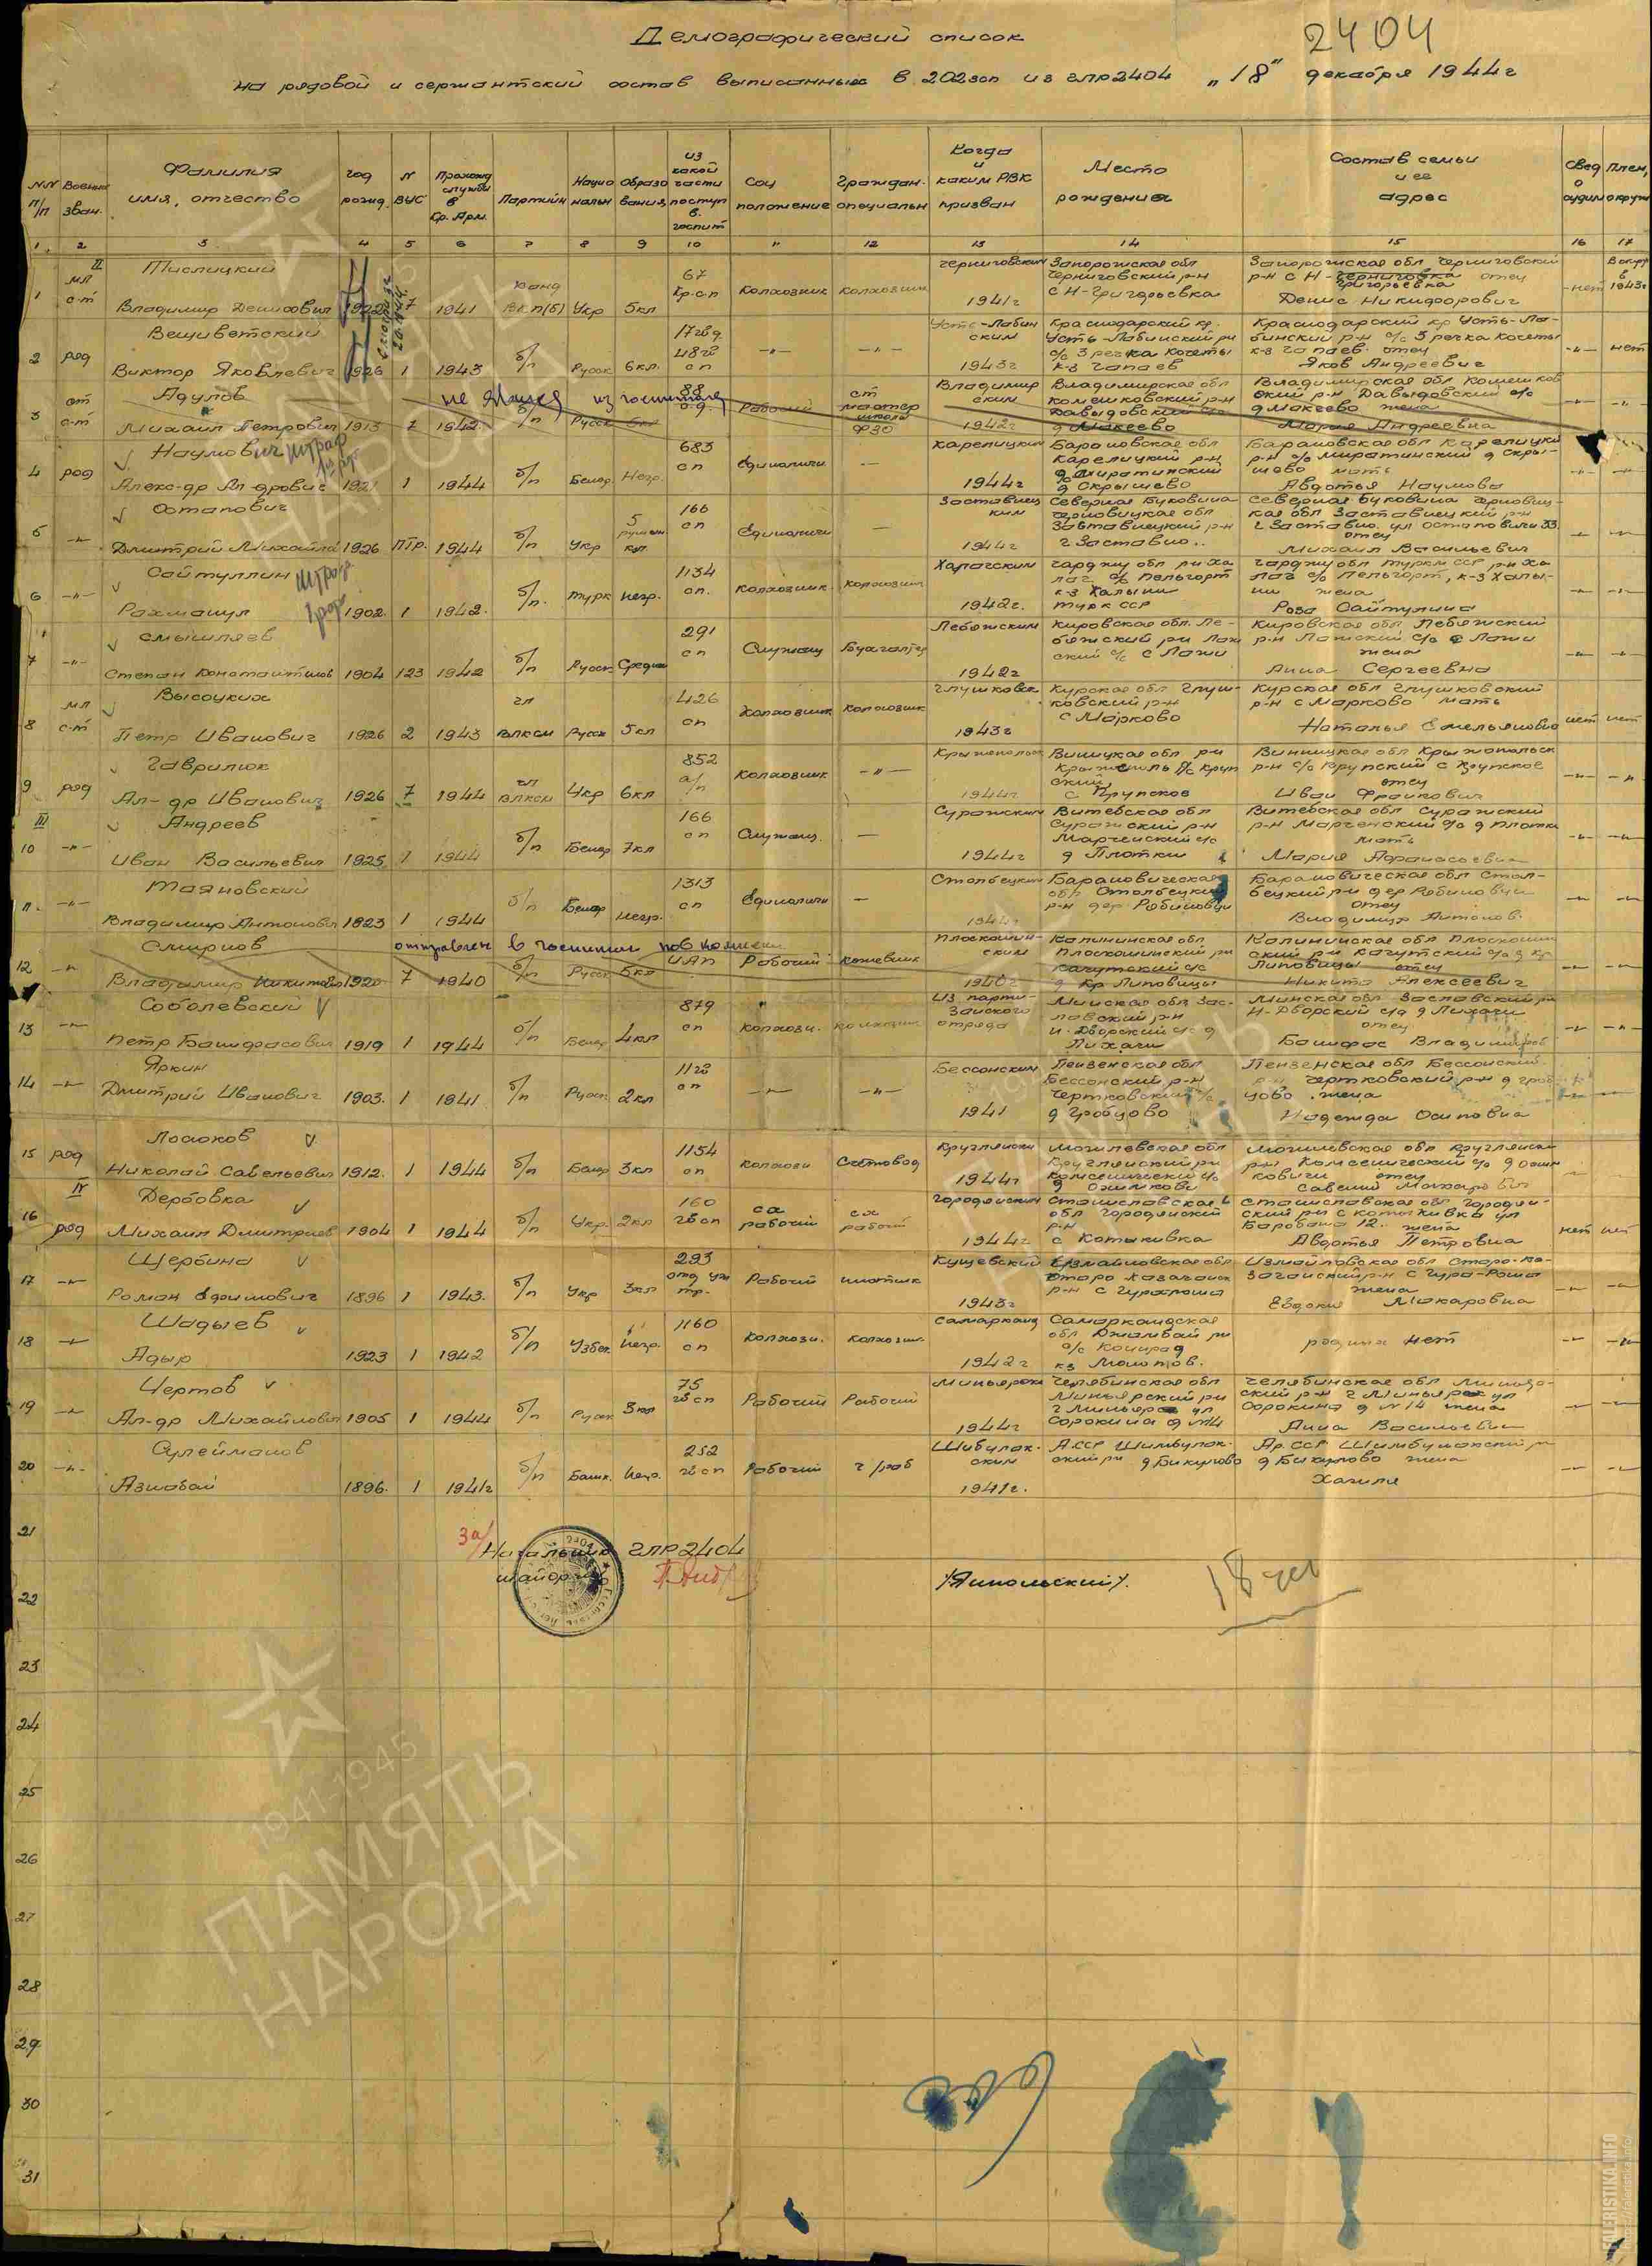 Демографический список
2404
на рядовой и сержантский состав выписанных в 202 зсп из глр 2404 „18" декабря 1944 г
NN п/п
Военн. зван.
Фамилия имя, отчество
год рожд.
N ВУС
Прохожд службы в Кр. Арм.
Партийн
Национальн
Образования
из какой части поступ в госпит
Соц положение
Граждан. специальн
Когда и каким РВК призван
Место рождения
Состав семьи и ее адрес
Свед о судим
Плен, окруж
1 2 3 4 5 6 7 8 9 10 11 12 13 14 15 16 17
1 мл с-т Тислицкий Владимир Денисович 1922 7 1941 канд ВКП(б) Укр 5кл 67 Колхозник Колхозник Черниговским 1941г Запорожская обл Черниговский р-н с Н-Григорьевка Запорожская обл Черниговский р-н с Н-Черниговка Григорьевка отец Денис Никифорович нет 1943г
2 ряд Вещиветский Виктор Яковлевич 1926 1 1943 б/п Русск 6кл. 17 гв д 48 гв сп -"- -"- Усть-Лабинским 1943г Краснодарский кр. Усть-Лабинский р-н с/с 3 речка Кочеты к-з Чапаев Краснодарский кр Усть-Лабинский р-н с/с 3 речка Кочеты к-з Чапаев. отец Яков Андреевич -"- нет
3 ст с-т Адулов Михаил Петрович 1913 7 1942 б/п Русск из госпиталя 88 Рабочий ст мастер школа ФЗО Владимирским 1942г Владимирская обл Комешковский р-н Давыдовский с/с д Макеево Владимирская обл Комешковский р-н Давыдовский с/с д Макеево жена Мария Андреевна -"- -"-
4 ряд Наумович штраф Алекс-др Ал-дрович 1921 1 1944 б/п Белор Негр. 683 сп Единоличн. — Карелицким 1944г Барановская обл Карелицкий р-н с/с Миратинский д Скрышево Барановская обл Карелицкий р-н с/с Миратинский д Скрышево мать Авдотья Наумова -"- -"-
5 -"- Остапович Дмитрий Михайло 1926 ПТР. 1944 б/п Укр 5 румын кл. 166 сп Единоличн — Заставнецким 1944г Северная Буковина Черновицкая обл Заставнецкий р-н г Заставно.. Северная Буковина Черновицкая обл Заставнецкий р-н г Заставно. ул Остаповича 33 отец Михаил Васильевич
6 -"- Сайтуллин Штраф Рахманул 1902. 1 1942. б/п. Турк негр. 1134 сп. Колхозник. Колхозник Халачским 1942г. Чарджу обл р-н Халач с/с Пельгорт к-з Халыни Турк ССР Чарджу обл Туркм ССР р-н Халач с/с Пельгорт, к-з Халыни жена Роза Сайтулина
7 -"- Смышляев Степан Константинов 1904 123 1942 б/п Русск Средн 291 сп Служащ Бухгалтер Лебяжским 1942г Кировская обл. Лебяжский р-н Лажский с/с с Лажи Кировская обл Лебяжский р-н Лажский с/с с Лажи жена Анна Сергеевна
8 мл с-т Высоцких Петр Иванович 1926 2 1943 чл ВЛКСМ Русск 5кл 426 сп Колхозник Колхозник Глушковск 1943г Курская обл Глушковский р-н с Марково Курская обл Глушковский р-н с Марково мать Наталья Емельяновна нет нет
9 ряд Гаврилюк Ал-др Иванович 1926 7 1944 чл ВЛКСМ Укр 6кл 852 а/п Колхозник -"- Крыжопольск 1944г. Виницкая обл р-н Крыжополь с/с Крупский с Крупское Винницкая обл Крыжопольск р-н с/с Крупский с Крупское отец Иван Франкович
10 -"- Андреев Иван Васильевич 1925 1 1944 б/п Белор 7кл 166 сп Служащ. — Суражским 1944г Витебская обл Суражский р-н Марченский с/с д Плотки Витебская обл Суражский р-н Марченский с/с д Плотки мать Мария Афанасьевна
11. -"- Таяновский Владимир Антонович 1923 1 1944 б/п Белор негр. 1313 сп Единоличн — Столбецким 1944г Барановическая обл Столбецкий р-н дер Рабиновци Барановическая обл Столбецкий р-н дер Рабиновци отец Владимир Антонов.
12 -"- Смирнов отправлен в госпиталь Владимир Никитович 1920 7 1940 б/п Русск 5кл ИАП Рабочий кожевник Плоскошинским 1940г Калининская обл Плоскошинский р-н Качутский с/с д Кр Липовицы Калининская обл Плоскошинский р-н Качутский с/с д Кр Липовицы отец Никита Алексеевич
13 -"- Соболевский Петр Банифасович 1919 1 1944 б/п Белор 4кл 879 сп Колхозн. Колхозник Из партизанского отряда Минская обл Заславский р-н Н-Дворский с/с д Лихачи Минская обл Заславский р-н Н-Дворский с/с д Лихачи отец Банифас Владимиров
14 -"- Яркин Дмитрий Иванович 1903. 1 1941 б/п Русск 2кл сп -"- -"- Бессонским 1941 Пензенская обл Бессонский р-н Чертковский с/с д Гробцово Пензенская обл Бессонский р-н Чертковский р-н д Гробцово. жена Надежда Осиповна
15 ряд Лосюков Николай Савельевич 1912. 1 1944 б/п Белор 3кл 1154 сп Колхозн Счетовод Круглянск 1944г Могилевская обл Круглянский р-н Комсеничский с/с Могилевская обл Круглянский р-н Комсеничский с/с отец Савелий
16 ряд Дербовка Михаил Дмитриев 1904 1 1944 б/п Укр. 2кл 160 гв сп сх рабочий сх рабочий Городенским 1944г Станиславская обл Городенский р-н с Котыкивка Станиславская обл Городенский р-н с Котыкивка ул Барабаша 12. жена Авдотья Петровна нет нет
17 -"- Щербина Роман Ефимович 1896 1 1943. б/п Укр 3кл 293 Рабочий плотник Кущевский 1943г Измайловская обл Старо Казачанск р-н с Гурароша Измайловская обл Старо-Казачанский р-н с Гура-Роша жена Евдокия Макаровна
18 -"- Шадыев Адыр 1923 1 1942 б/п Узбек негр. 1160 сп Колхозн. Колхозн. Самарканд 1942г Самаркандская обл Джамбай р-н с/с Конирад кз Молотов. родных нет
19 -"- Чертов Ал-др Михайлович 1905 1 1944 б/п Русск 3кл 75 гв сп Рабочий Рабочий Миньярским 1944г Челябинская обл Миньярский р-н г Миньяр ул Сорокина д N14 Челябинская обл Миньярский р-н г Миньяр ул Сорокина д N 14 жена Анна Васильевн
20 -"- Сулейманов Азнабай 1896. 1 1941г б/п Башк. Негр. 252 гв сп Рабочий ч/раб 1941г. АССР д Бикулово д Бикулово жена
21
За/ Начальник ГЛР 2404
майор
/Ямпольский/.
18 чел
22
23
24
25
26
27
28
29
30
31
1941-1945
ПАМЯТЬ
НАРОДА
FALERISTIKA.INFO